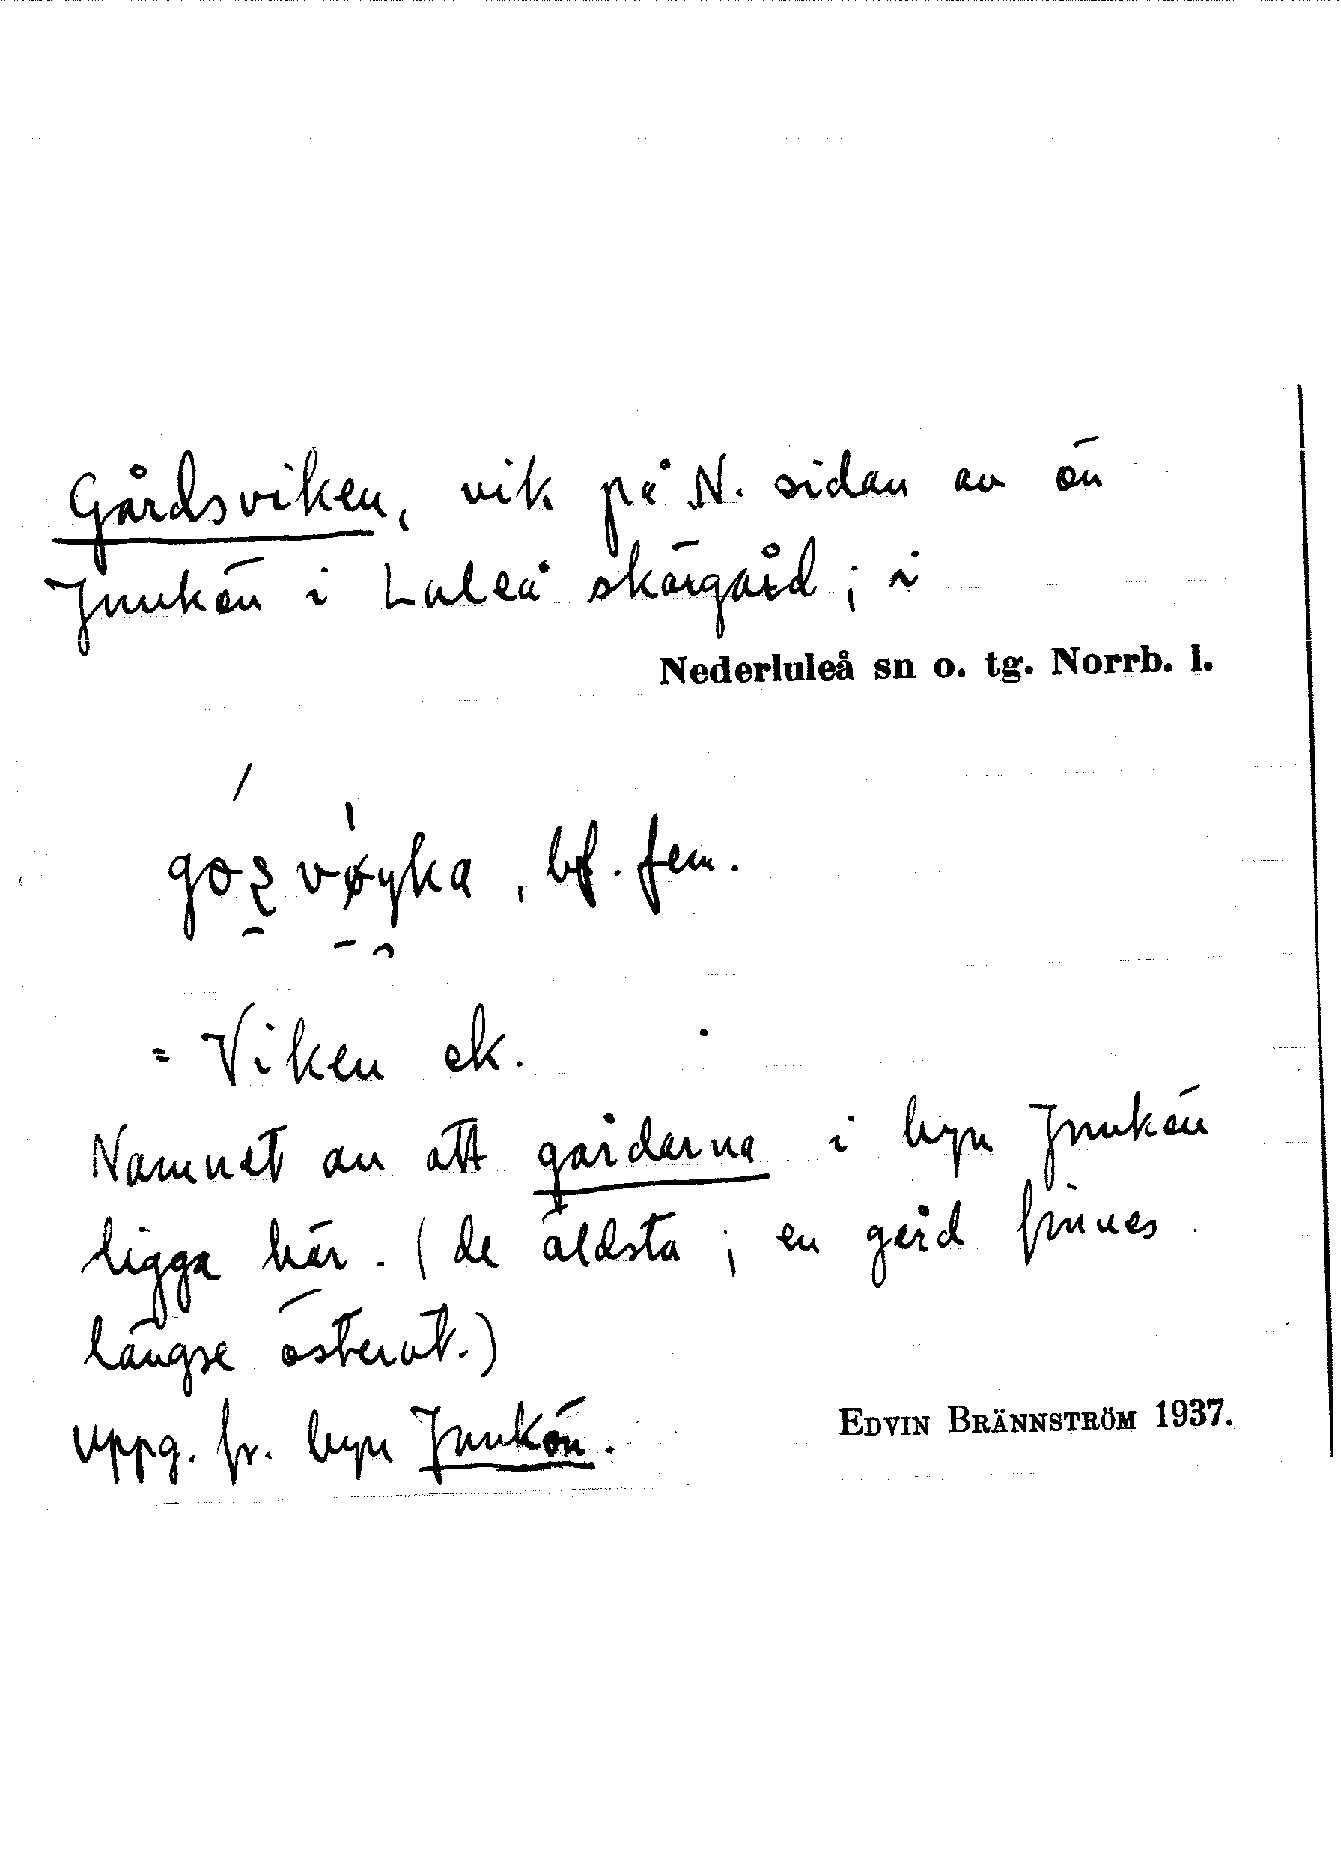 Gårdsviken, vik på N. sidan av ön
Junkön i Luleå skärgård; i
Nederluleå sn o. tg. Norrb. l.
bf. fem.
= Viken ek.
Namnet av att gårdarna i byn Junkön
ligga här. (de äldsta; en gård finnes
längre österut.)
Uppg. fr. byn Junkön.
EDVIN BRÄNNSTRÖM 1937.